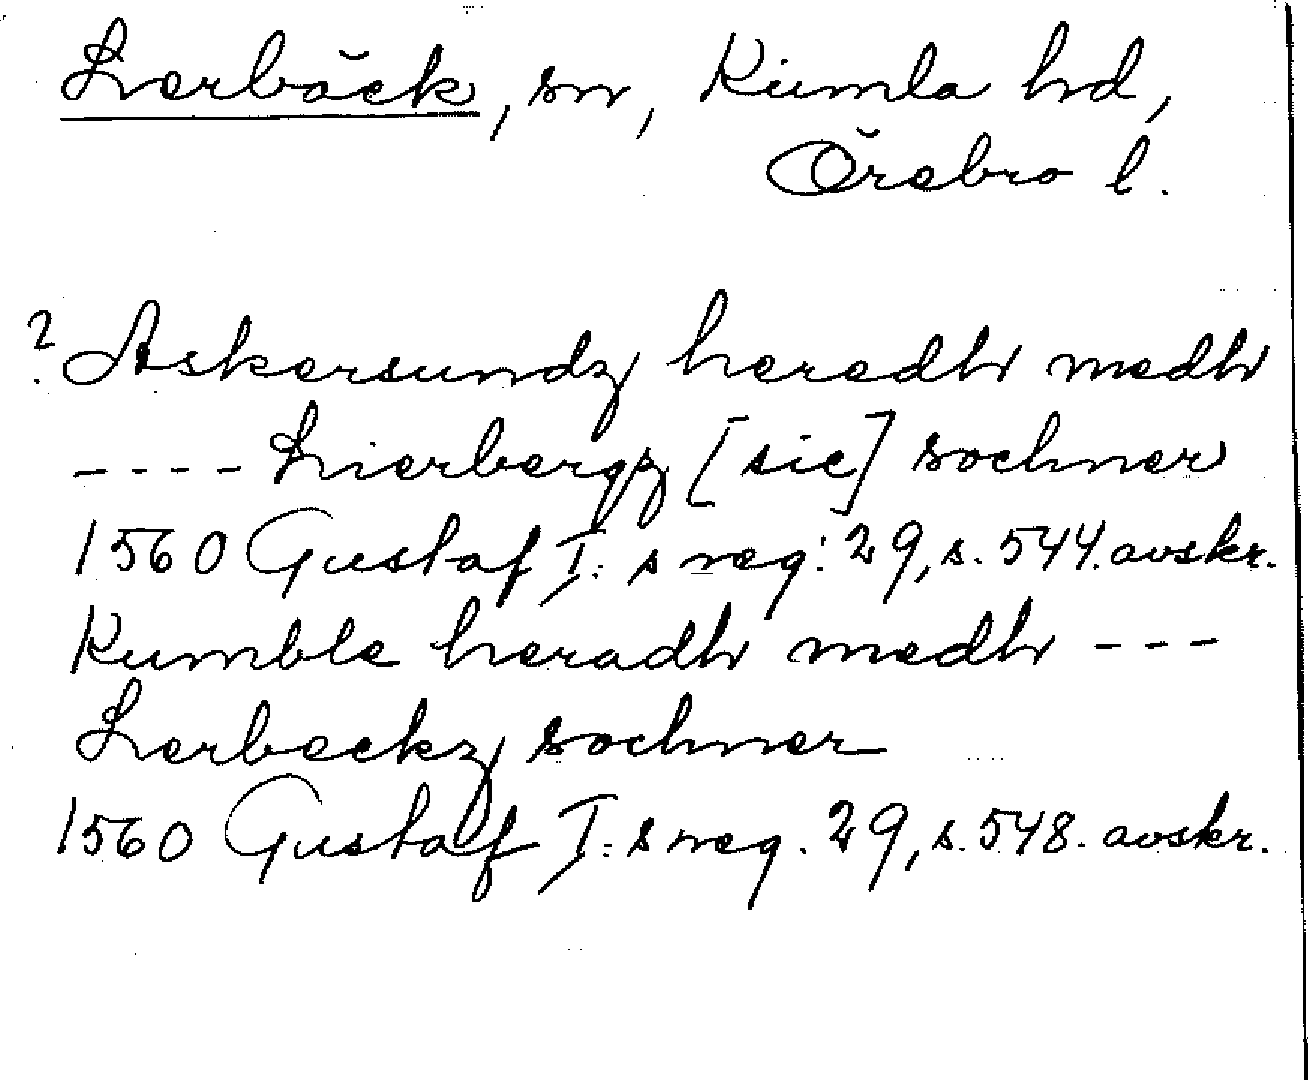 Lerbäck, sn, Kumla hd,
Örebro l.
? Askersundz heredh medh
---- Lierbergz [sic] sochner
1560 Gustaf I:s reg. 29, s. 544. avskr.
Kumble heradh medh ---
Lerbeckz sochner
1560 Gustaf I:s reg. 29, s. 548. avskr.